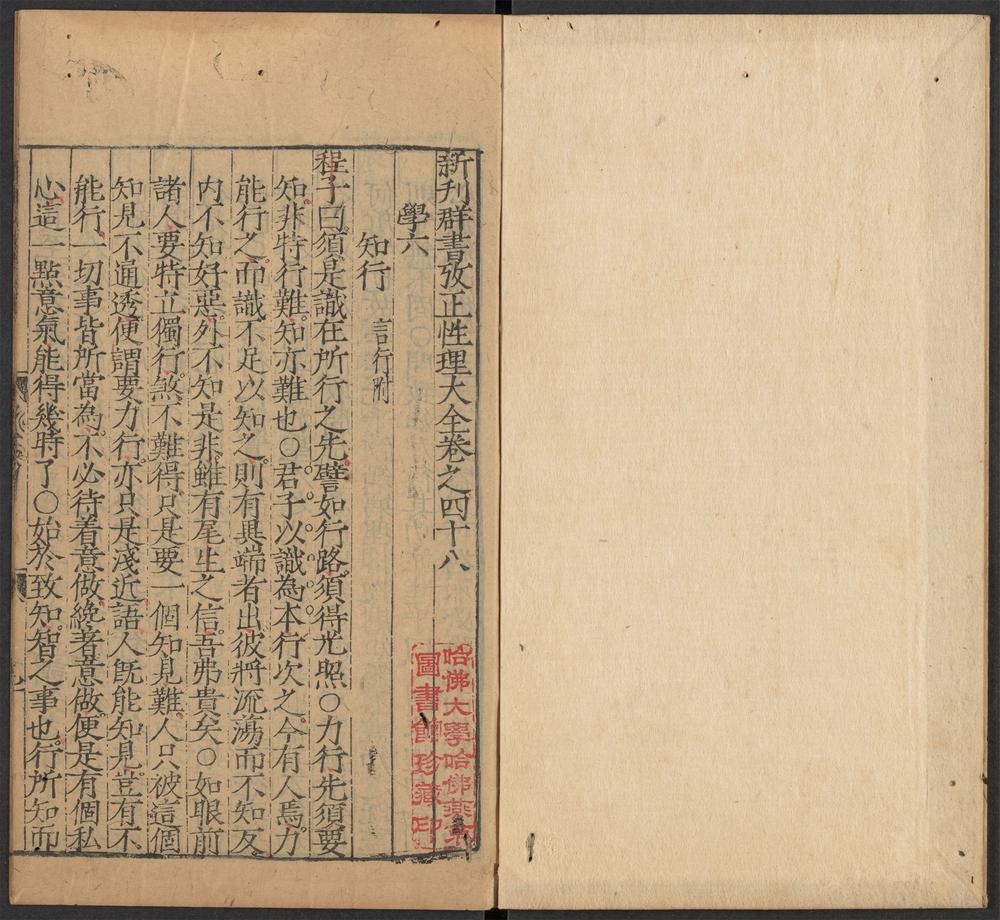 新刊群書攷正性理大全卷之四十八
學六
知行 言行附
程子曰須是識在所行之先譬如行路須得光照○力行先須要
知非特行難知亦難也○君子以識為本行次之今有人焉力
能行之而識不足以知之則有異端者出彼將流蕩而不知反
内不知好惡外不知是非雖有尾生之信吾弗貴矣○如眼前
諸人要特立獨行煞不難得只是要一個知見難人只被這個
知見不通透便謂要力行亦只是淺近語人旣能知見豈有不
能行一切事皆所當為不必待着意做纔着意做便是有個私
心這一點意氣能得幾時了○始於致知智之事也行所知而
哈佛大學哈佛燕京
圖書館珍藏印